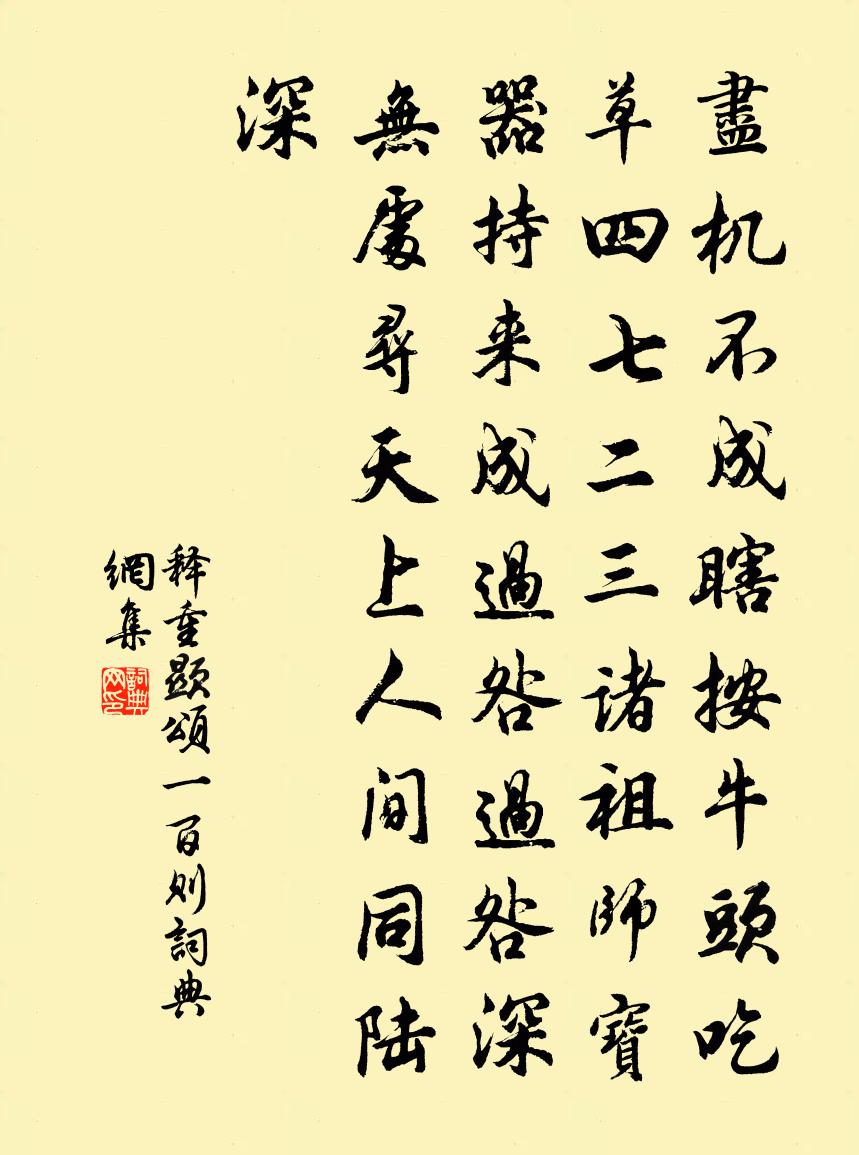 盡机不成瞎按牛頭吃
草四七二三诸祖師寶
器持来成過咎過咎深
無處尋天上人间同陆
深
释重顯頌一百则詞典
網集
詞典
网印